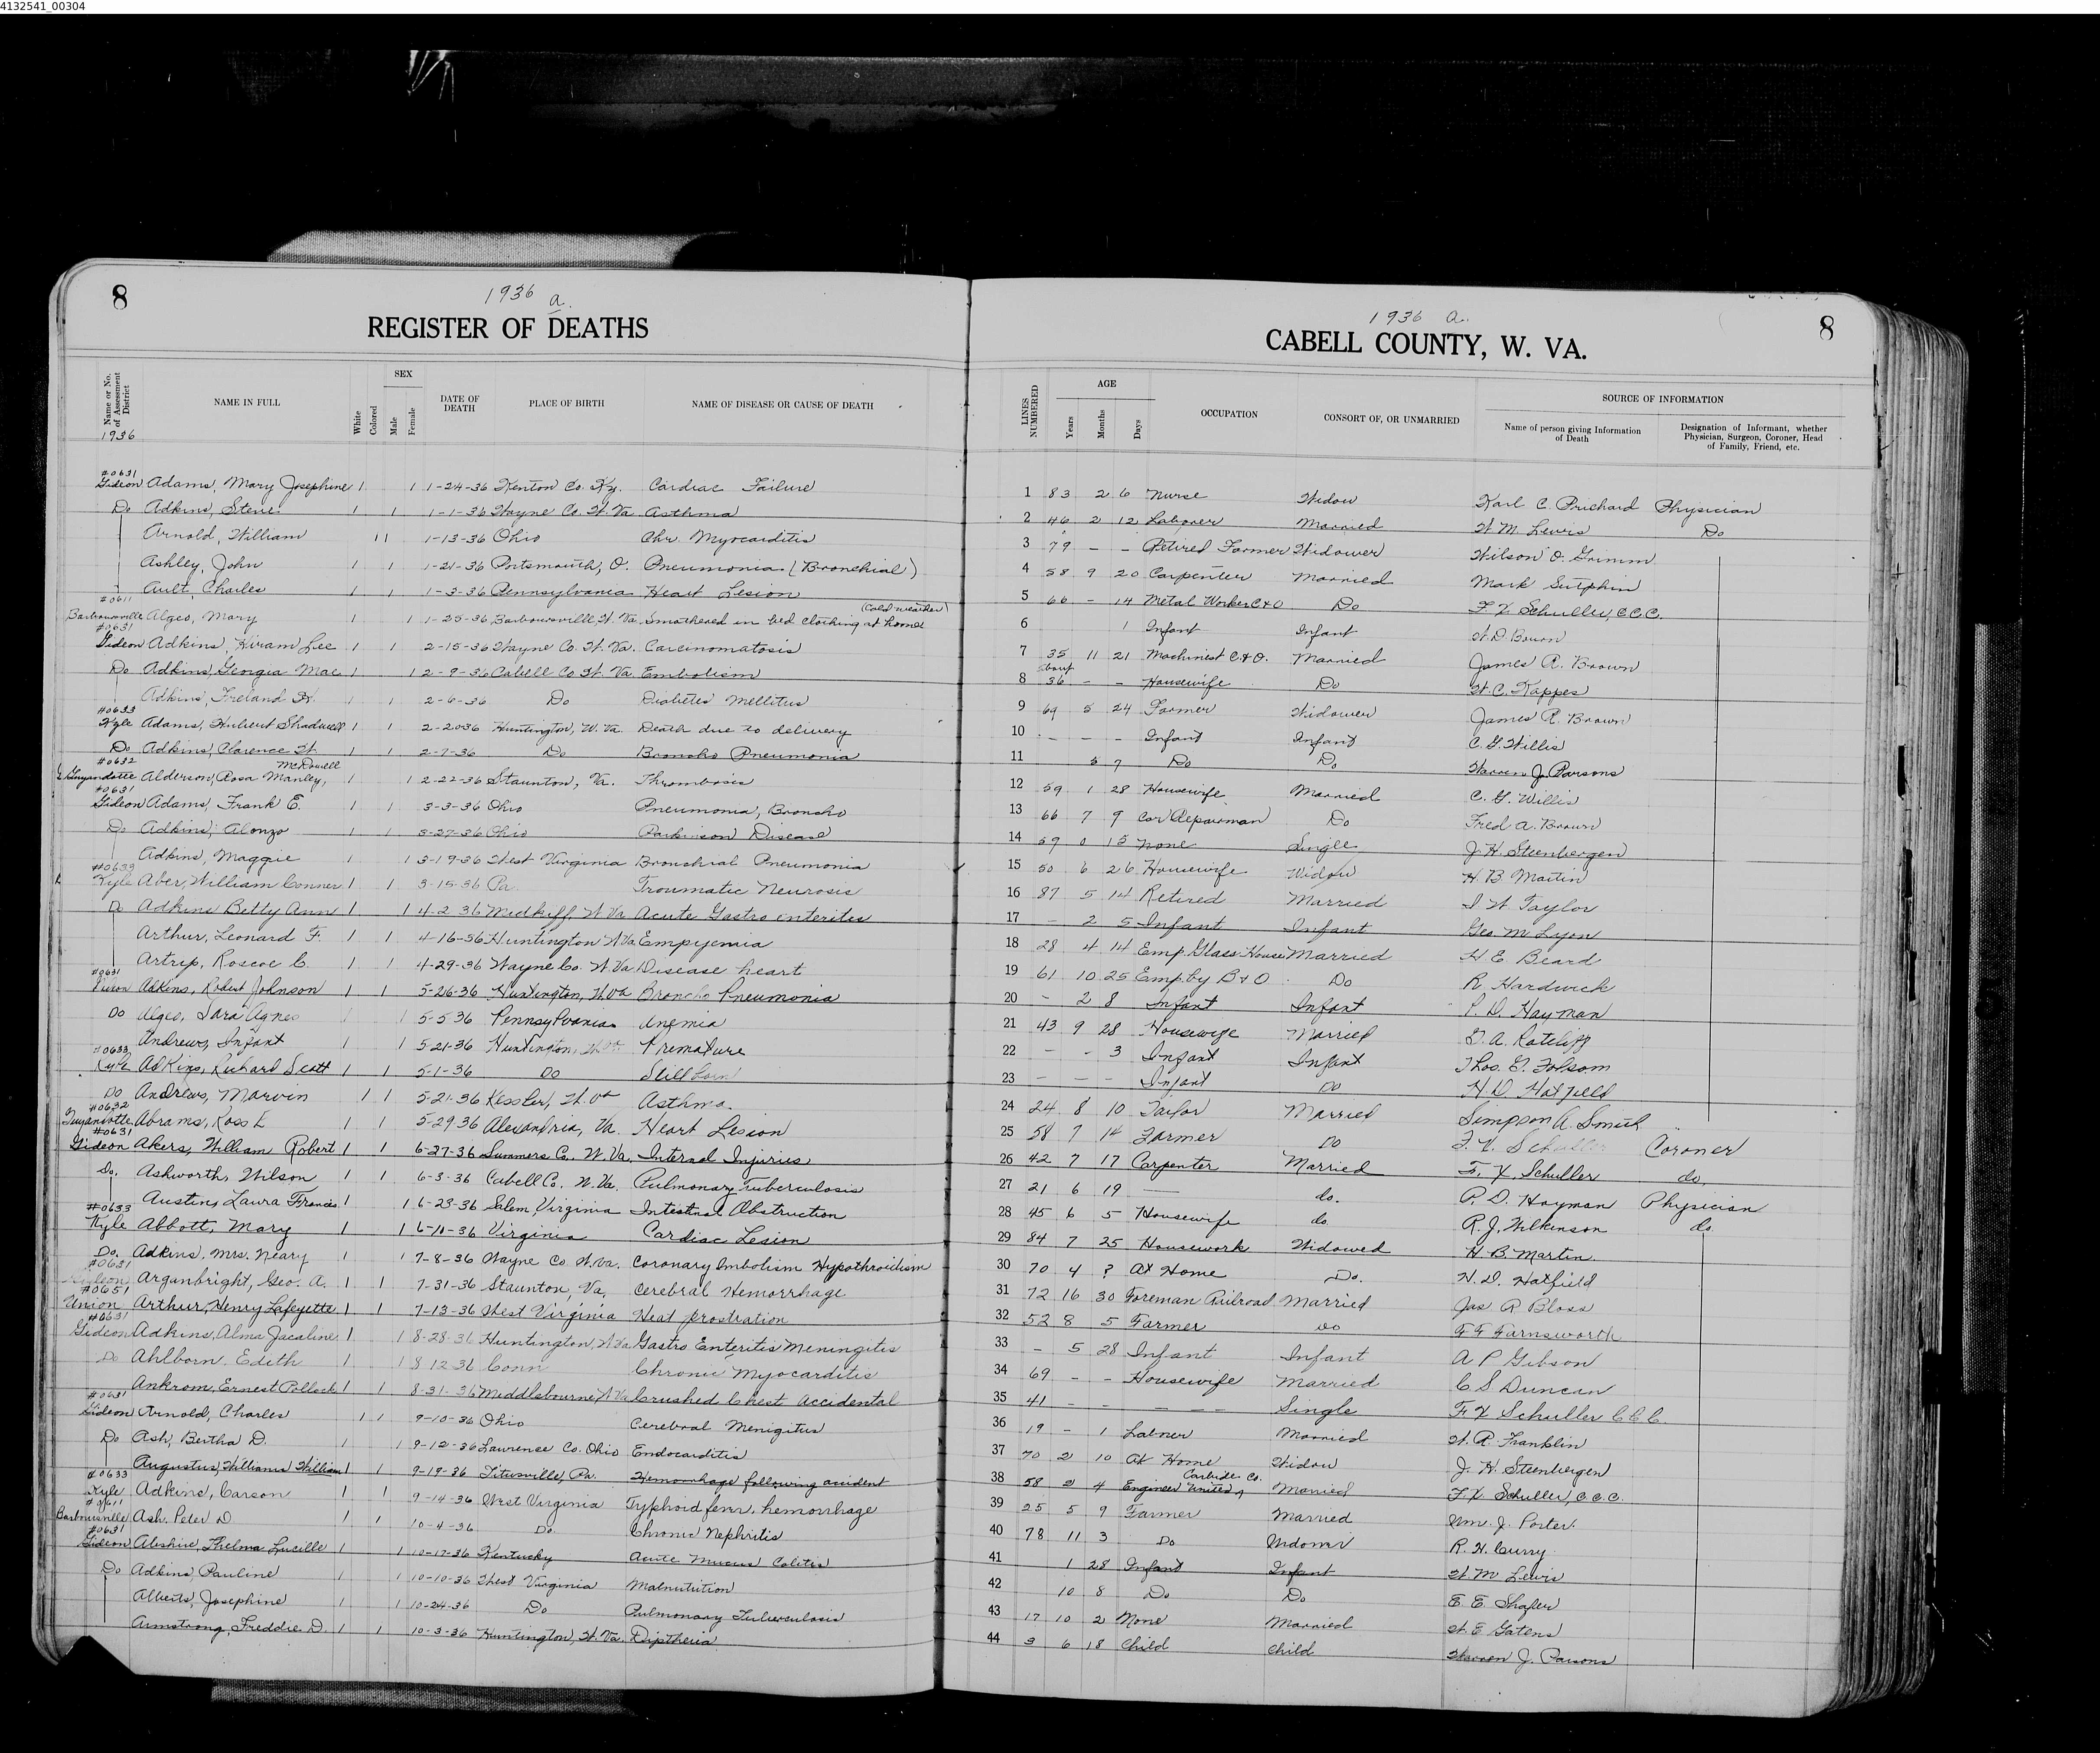 4132541_00304
8
1936 a.
REGISTER OF DEATHS
1936 a.
CABELL COUNTY, W. VA.
8
Name or No. of Assessment District
NAME IN FULL
White
Colored
SEX
Male
Female
DATE OF DEATH
PLACE OF BIRTH
NAME OF DISEASE OR CAUSE OF DEATH
LINES NUMBERED
AGE
Years
Months
Days
OCCUPATION
CONSORT OF, OR UNMARRIED
SOURCE OF INFORMATION
Name of person giving Information of Death
Designation of Informant, whether Physician, Surgeon, Coroner, Head of Family, Friend, etc.
1936
#0631
Gideon Adams, Mary Josephine 1 1 1-24-36 Kenton Co. Ky. Cardiac Failure 1 83 2 6 Nurse Widow Karl C. Prichard Physician
Do Adkins, Steve 1 1 1-1-36 Wayne Co. W. Va Asthma 2 46 2 12 Laborer Married W. M. Lewis Do
Arnold, William 1 1 1-13-36 Ohio Chr. Myocarditis 3 79 - - Retired Farmer Widower Wilson O. Grimm
Ashley, John 1 1 1-21-36 Portsmouth, O. Pneumonia (Bronchial) 4 58 9 20 Carpenter Married Mark Sutphin
Ault, Charles 1 1 1-3-36 Pennsylvania Heart Lesion 5 66 - 14 Metal Worker C&O Do F. X. Schuller, C.C.C.
#0611
Barboursville Algeo, Mary 1 1 1-25-36 Barboursville, W. Va. Smothered in bed clothing at home (Cold weather) 6 1 Infant Infant W. D. Bourn
#0631
Gideon Adkins, Hiram Lee 1 1 2-15-36 Wayne Co. W. Va. Carcinomatosis 7 35 11 21 Machinist C.&O. Married James R. Brown
Do Adkins, Georgia Mae 1 1 2-9-36 Cabell Co W. Va Embolism 8 about 36 - - Housewife Do W. C. Kappes
Adkins, Ireland H. 1 1 2-6-36 Do Diabetes Mellitus 9 69 5 24 Farmer Widower James R. Brown
#0633
Kyle Adams, Hubert Shadwell 1 1 2-2036 Huntington, W. Va. Death due to delivery 10 - - - Infant Infant C. G. Willis
Do Adkins, Clarence W. 1 1 2-7-36 Do Broncho Pneumonia 11 3 7 Do Do Warren J. Parsons
#0632
Guyandotte Alderson, Rosa Manley, McDowell 1 1 2-22-36 Staunton, Va. Thrombosis 12 59 1 28 Housewife Married C. G. Willis
#0631
Gideon Adams, Frank E. 1 1 3-3-36 Ohio Pneumonia, Broncho 13 66 7 9 Car Repairman Do Fred A. Brown
Do Adkins, Alonzo 1 1 3-27-36 Ohio Parkinson Disease 14 59 0 15 None Single J. H. Steenbergen
Adkins, Maggie 1 1 3-19-36 West Virginia Bronchial Pneumonia 15 50 6 26 Housewife Widow H. B. Martin
#0633
Kyle Aber, William Conner 1 1 3-15-36 Pa. Troumatic Neurosis 16 87 5 14 Retired Married I. W. Taylor
Do Adkins Betty Ann 1 1 4-2-36 Midkiff W Va Acute Gastro enterites 17 - 2 5 Infant Infant Geo M Lyon
Arthur, Leonard F. 1 1 4-16-36 Huntington W Va Empyemia 18 28 4 14 Emp. Glass House Married H E Beard
Artrip, Roscoe C. 1 1 4-29-36 Wayne Co. W. Va Disease heart 19 61 10 25 Emp. by B&O Do R Hardwick
#0631
Adkins, Robert Johnson 1 1 5-26-36 Huntington, W Va Broncho Pneumonia 20 - 2 8 Infant Infant P. D. Hayman
Do Algeo, Sara Agnes 1 1 5-5-36 Pennsylvania Anemia 21 43 9 28 Housewife Married G. A. Ratcliff
Andrews, Infant 1 5-21-36 Huntington, W Va Premature 22 - - 3 Infant Infant Thos. E. Folsom
#0633
Kyle Adkins, Richard Scott 1 1 5-1-36 Do Still born 23 - - - Infant Do H. D. Hatfield
Do Andrews, Marvin 1 1 5-21-36 Kessler, W. Va Asthma. 24 24 8 10 Tailor Married Simpson A. Smith
#0632
Guyandotte Abrams, Ross L 1 1 5-29 36 Alexandria, Va. Heart Lesion 25 58 7 14 Farmer Do F. X. Schuller Coroner
#0631
Gideon Akers, William Robert 1 1 6-27-36 Summers Co., W. Va. Internal Injuries 26 42 7 17 Carpenter Married F. X. Schuller do.
Do. Ashworth, Wilson 1 1 6-3-36 Cabell Co. W. Va. Pulmonary Tuberculosis 27 21 6 19 — do. P. D. Hayman Physician
Austin, Laura Frances 1 1 6-23-36 Salem Virginia Intestinal Obstruction 28 45 6 5 Housewife do R. J. Wilkinson do.
#0633
Kyle Abbott, Mary 1 1 6-11-36 Virginia Cardiac Lesion 29 84 7 25 Housework Widowed H. B. Martin
Do. Adkins. Mrs. Neary 1 1 7-8-36 Wayne Co. W. Va. Coronary Imbolism Hypothroidism 30 70 4 ? At Home Do. H. D. Hatfield
#0631
Gideon Arganbright, Geo. A. 1 1 7-31-36 Staunton, Va, Cerebral Hemorrhage 31 72 16 30 Foreman Railroad Married Jas. R Bloss
#0651
Union Arthur, Henry Lafeyette 1 1 7-13-36 West Virginia Heat prostration 32 52 8 5 Farmer Do F F Farnsworth
#0631
Gideon Adkins, Alma Jacaline 1 1 8-28-36 Huntington, W Va Gastro Enteritis Meningitis 33 - 5 28 Infant Infant A P Gibson
Do Ahlborn. Edith 1 1 8 12 36 Conn Chronic Myocarditis 34 69 - - Housewife Married C S Duncan
Ankrom, Ernest Pollock 1 1 8-31-36 Middlebourne, W Va Crushed Chest Accidental 35 41 - - - - - Single F. X Schuller C C C.
#0631
Gideon Arnold, Charles 1 1 9-10-36 Ohio Cerebral Menigitus 36 19 - 1 Laborer Married W. R. Franklin
Do Ash, Bertha D. 1 1 9-12-36 Lawrence Co. Ohio Endocarditis 37 70 2 10 At Home Widow J. H. Steenbergen
Augustus, Williams William 1 1 9-19-36 Titusville, Pa. Hemorrhage following accident 38 58 2 4 Engineer United Carbide Co. Married F. X. Schuller, C.C.C.
#0633
Kyle Adkins, Carson 1 1 9-14-36 West Virginia Typhoid fever, hemorrhage 39 25 5 9 Farmer Married Wm. J. Porter.
#0611
Barboursville Ash. Peter D 1 1 10-4-36 Do Chronic Nephritis 40 78 11 3 Do Widower R. H. Curry
#0631
Gideon Aleshire, Thelma Lucille 1 1 10-17-36 Kentucky Acute Mucus Colitis 41 1 28 Infant Infant W. M Lewis
Do Adkins, Pauline 1 1 10-10-36 West Virginia Malnutrition 42 10 8 Do Do E. E. Shafer
Alberts, Josephine 1 1 10-24-36 Do Pulmonary Tuberculosis 43 17 10 2 None Married W. E Gatens
Armstrong, Freddie D. 1 1 10-3-36 Huntington, W. Va. Diptheria 44 3 6 18 Child Child Warren J. Parsons